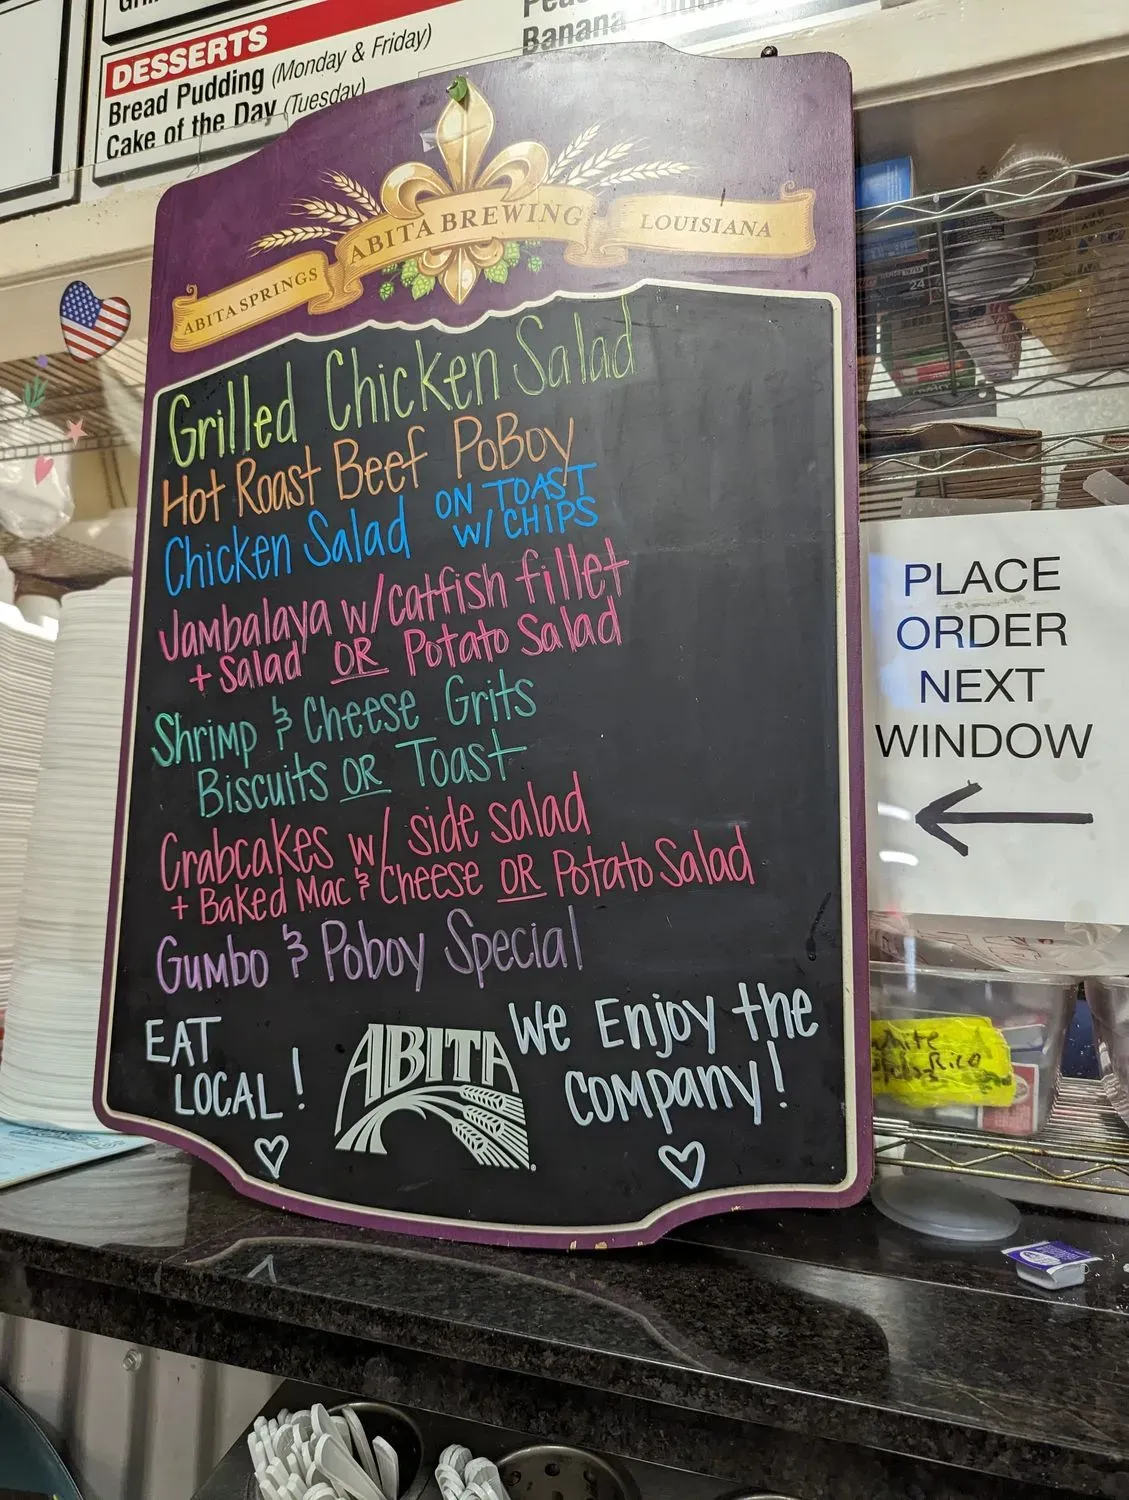 DESSERTS
Bread Pudding (Monday & Friday)
Cake of the Day (Tuesday)
Banana
ABITA SPRINGS
ABITA BREWING
LOUISIANA
Grilled Chicken Salad
Hot Roast Beef PoBoy
Chicken Salad ON TOAST
W/ CHIPS
Jambalaya w/catfish fillet
+ Salad OR Potato Salad
Shrimp & Cheese Grits
Biscuits OR Toast
Crabcakes w/ side salad
+ Baked Mac & Cheese OR Potato Salad
Gumbo & Poboy Special
EAT
LOCAL!
ABITA
We Enjoy the
Company!
PLACE
ORDER
NEXT
WINDOW
24
Rico